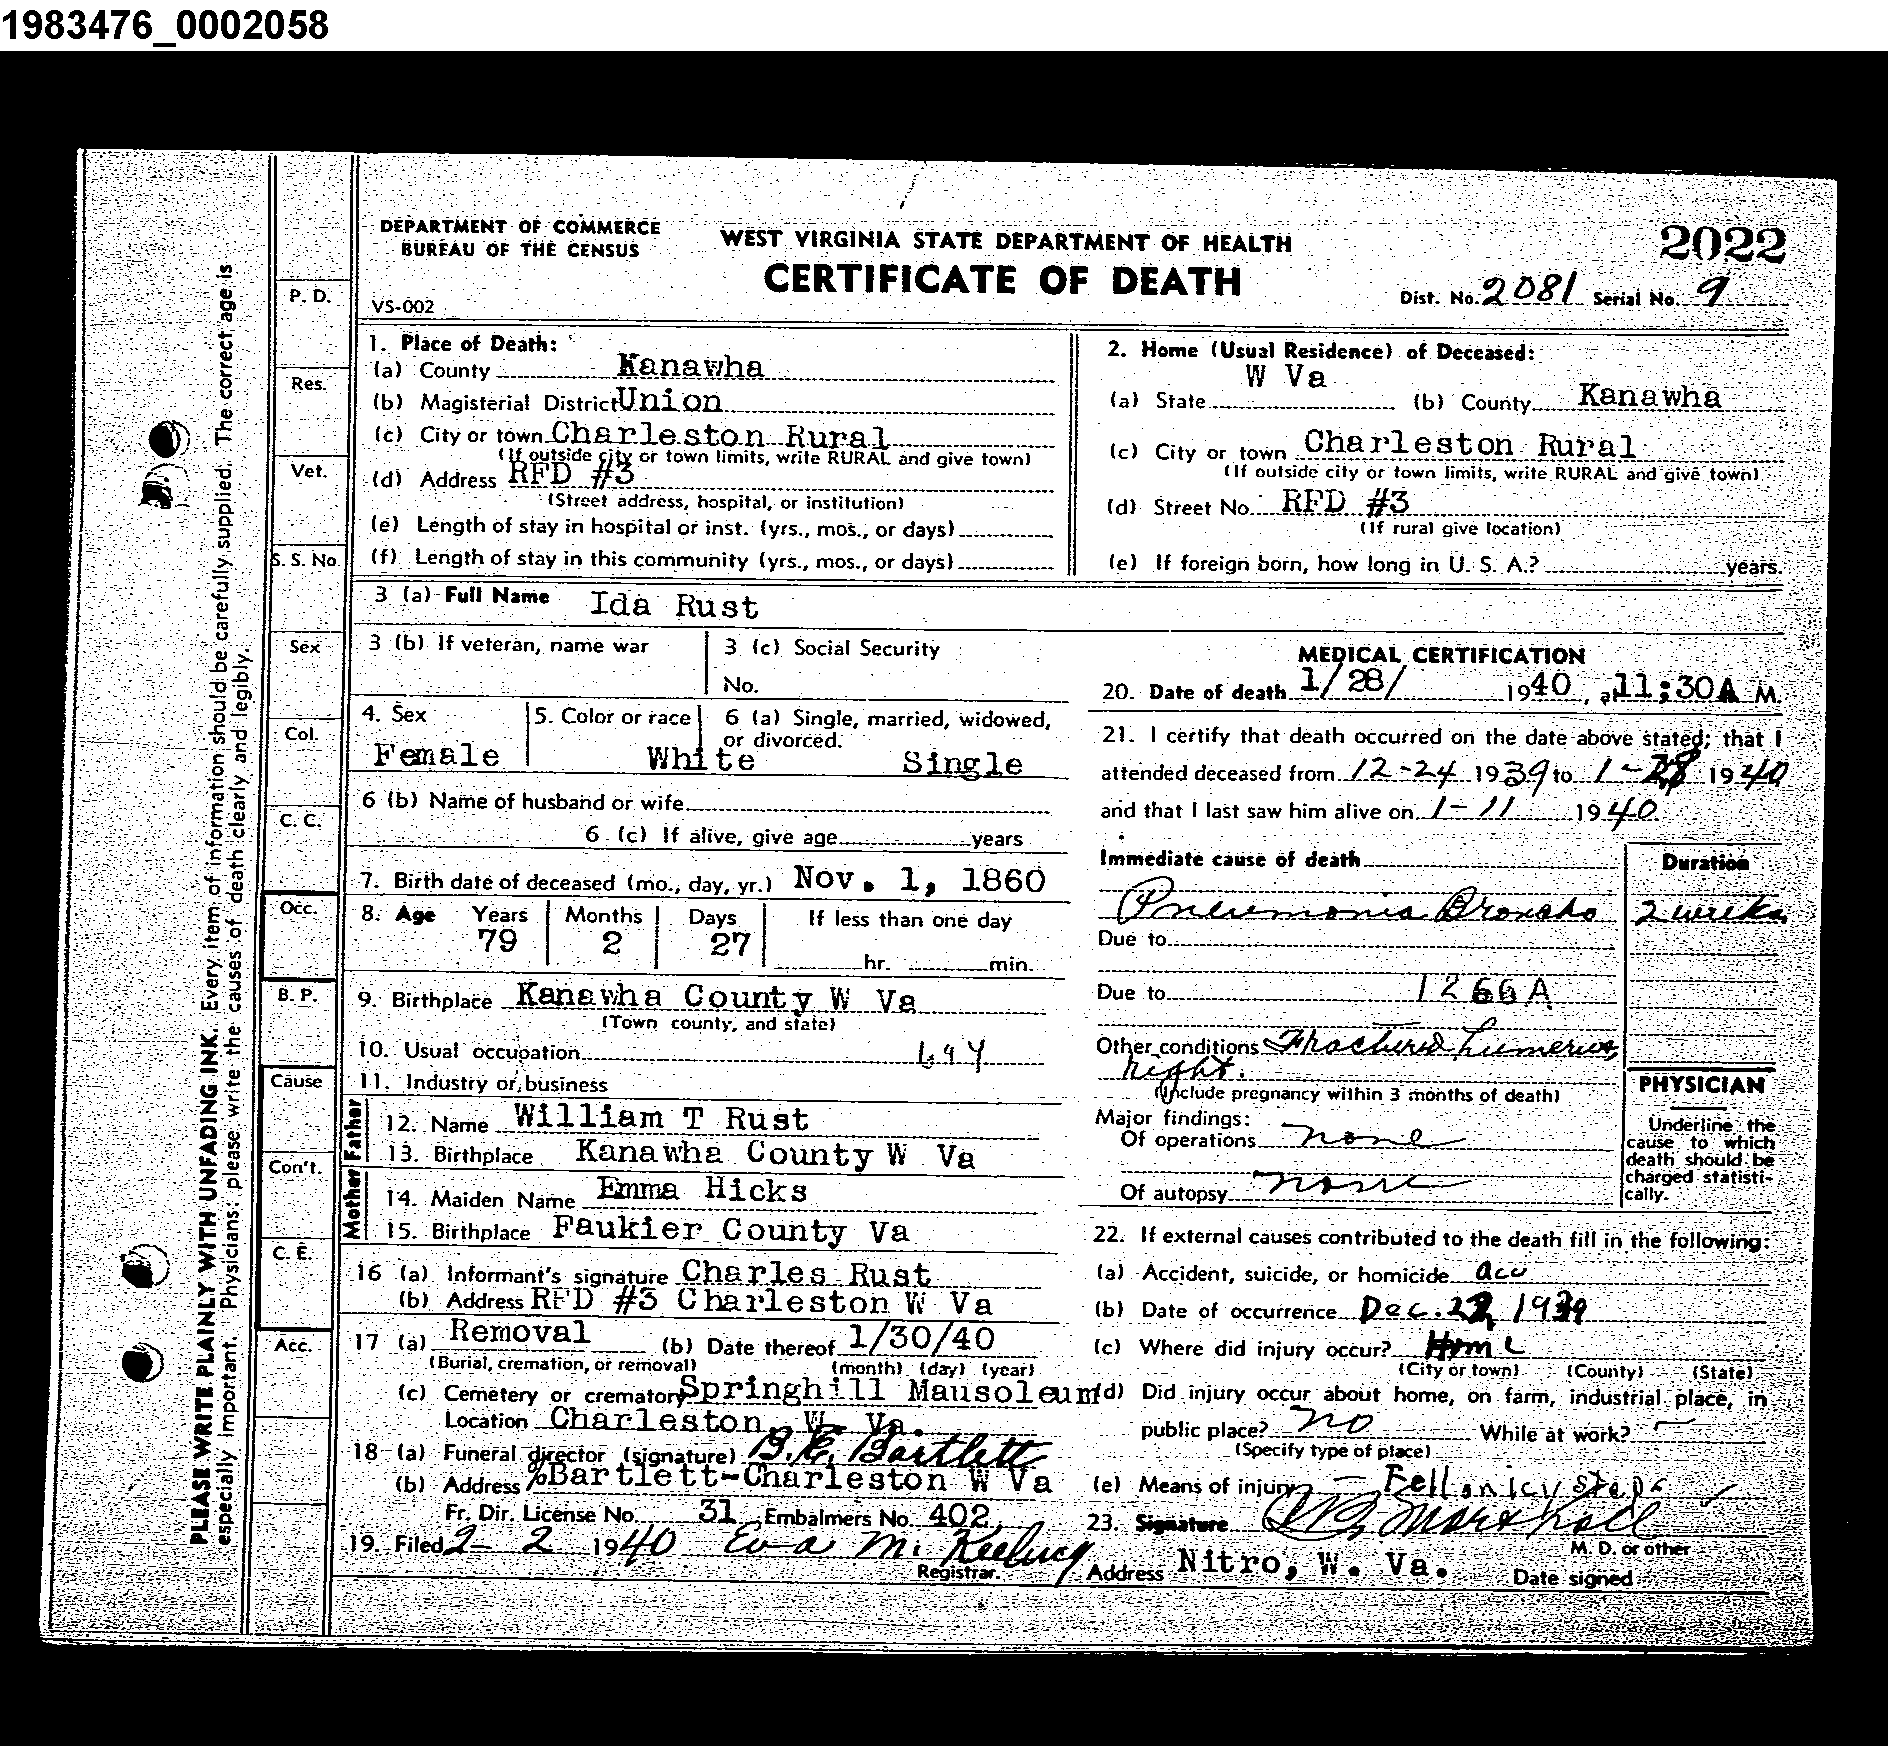 1983476_0002058
DEPARTMENT OF COMMERCE
BUREAU OF THE CENSUS
VS-002
WEST VIRGINIA STATE DEPARTMENT OF HEALTH
CERTIFICATE OF DEATH
2022
Dist. No. 2081 Serial No. 9
PLEASE WRITE PLAINLY WITH UNFADING INK. Every item of information should be carefully supplied. The correct age is
especially important. Physicians: please write the causes of death clearly and legibly.
P. D.
Res.
Vet.
S. S. No.
Sex
Col.
C. C.
Occ.
B. P.
Cause
Con't.
C. E.
Acc.
1. Place of Death:
(a) County Kanawha
(b) Magisterial District Union
(c) City or town Charleston Rural
(If outside city or town limits, write RURAL and give town)
(d) Address RFD #3
(Street address, hospital, or institution)
(e) Length of stay in hospital or inst. (yrs., mos., or days)
(f) Length of stay in this community (yrs., mos., or days)
2. Home (Usual Residence) of Deceased:
(a) State W Va (b) County Kanawha
(c) City or town Charleston Rural
(If outside city or town limits, write RURAL and give town)
(d) Street No. RFD #3
(If rural give location)
(e) If foreign born, how long in U. S. A.? years.
3 (a) Full Name Ida Rust
3 (b) If veteran, name war
3 (c) Social Security
No.
4. Sex
Female
5. Color or race
White
6 (a) Single, married, widowed,
or divorced.
Single
6 (b) Name of husband or wife
6 (c) If alive, give age years
7. Birth date of deceased (mo., day, yr.) Nov. 1, 1860
8. Age Years Months Days If less than one day
79 2 27
hr. min.
9. Birthplace Kanawha County W Va
(Town county, and state)
10. Usual occupation
11. Industry or business
Father
12. Name William T Rust
13. Birthplace Kanawha County W Va
Mother
14. Maiden Name Emma Hicks
15. Birthplace Faukier County Va
16 (a) Informant's signature Charles Rust
(b) Address RFD #3 Charleston W Va
17 (a) Removal (b) Date thereof 1/30/40
(Burial, cremation, or removal) (month) (day) (year)
(c) Cemetery or crematory Springhill Mausoleum
Location Charleston W. Va.
18 (a) Funeral director (signature) B.C. Bartlett
(b) Address %Bartlett-Charleston W Va
Fr. Dir. License No. 31 Embalmers No. 402
19. Filed 2-2 1940 Eva M.
Registrar.
MEDICAL CERTIFICATION
20. Date of death 1/28/ 1940, at 11:30A M.
21. I certify that death occurred on the date above stated; that I
attended deceased from 12-24 1939 to 1-28 1940
and that I last saw him alive on 1-11 1940.
Immediate cause of death
Duration
Pneumonia Broncho 2 weeks
Due to
Due to 1266A
Other conditions Fractured humerus
right.
(Include pregnancy within 3 months of death)
Major findings:
Of operations none
Of autopsy none
PHYSICIAN
Underline the
cause to which
death should be
charged statisti-
cally.
22. If external causes contributed to the death fill in the following:
(a) Accident, suicide, or homicide acc
(b) Date of occurrence Dec. 1939
(c) Where did injury occur? Home
(City or town) (County) (State)
(d) Did injury occur about home, on farm, industrial place, in
public place? no While at work?
(Specify type of place)
(e) Means of injury Fell on icy steps
23. Signature Marshall
M. D. or other
Address Nitro, W. Va. Date signed